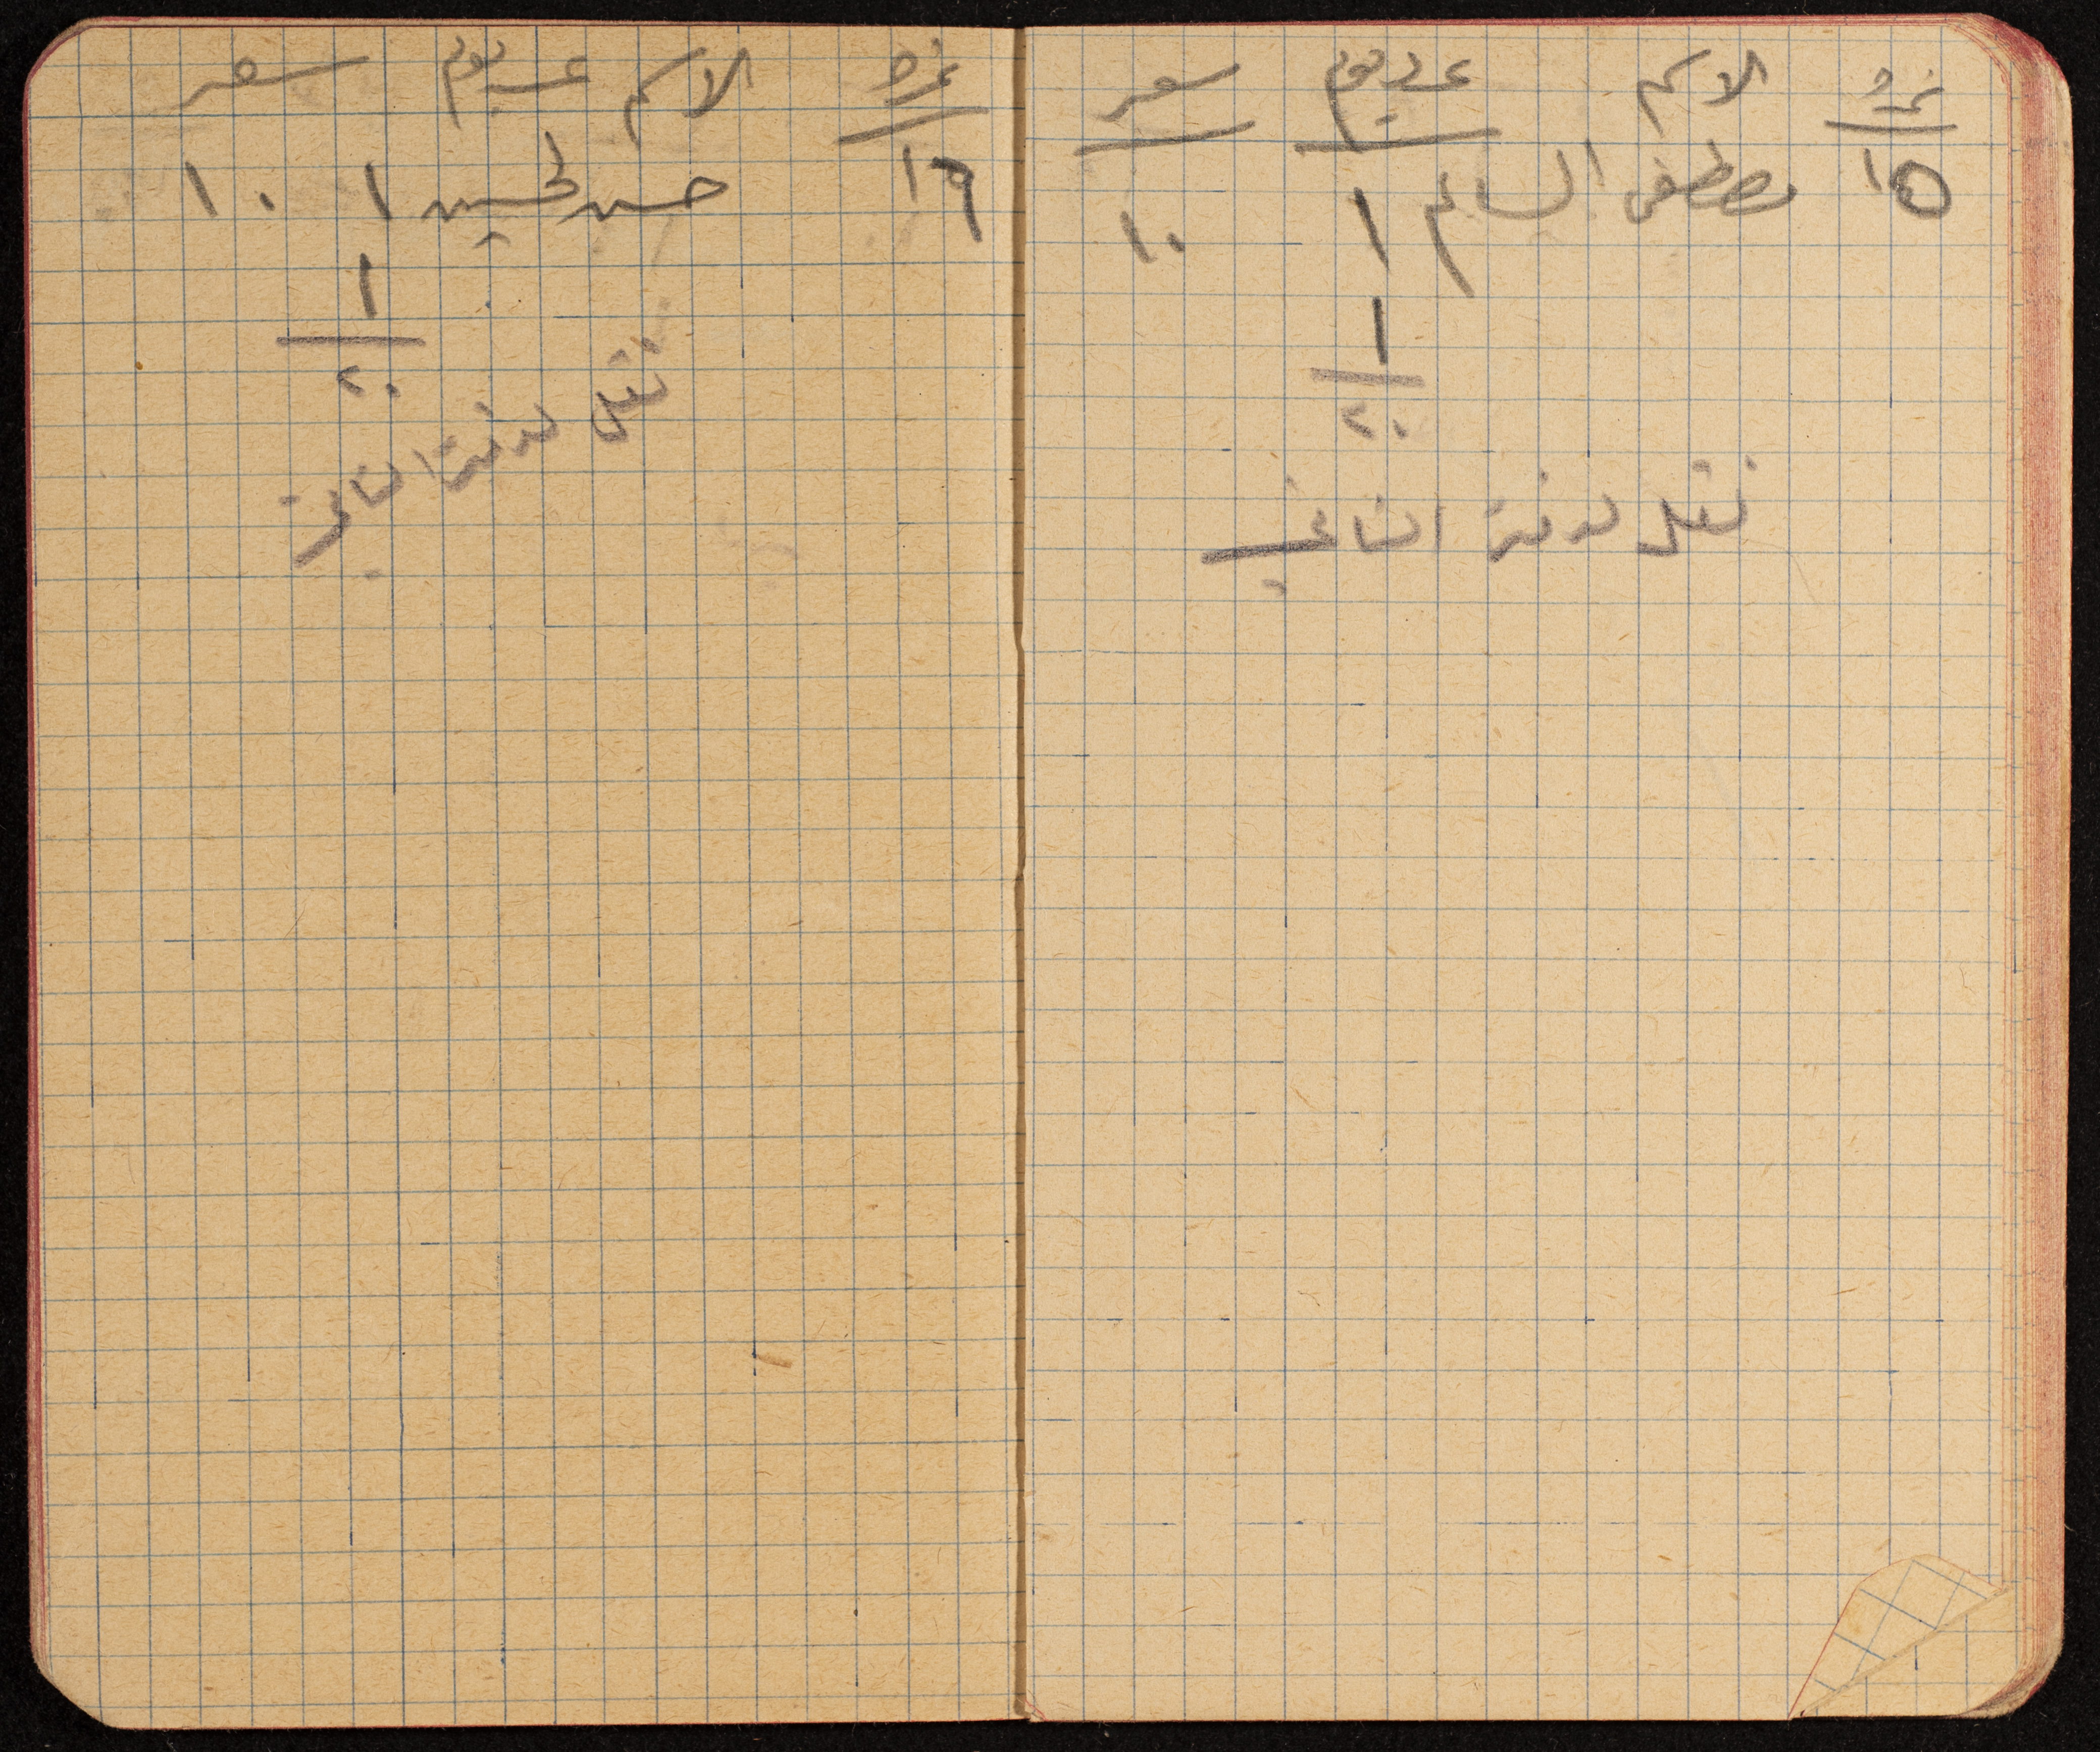 نمرة الاسم عدد يوم سعر
١٥ مصطفى السالم ١ ١٠
١
٢٠
نقل لدفتر الثاني
نمرة الاسم عدد يوم سعر
١٦ حسن الحسين ١ ١٠
١
٢٠
نقل لدفتر الثاني